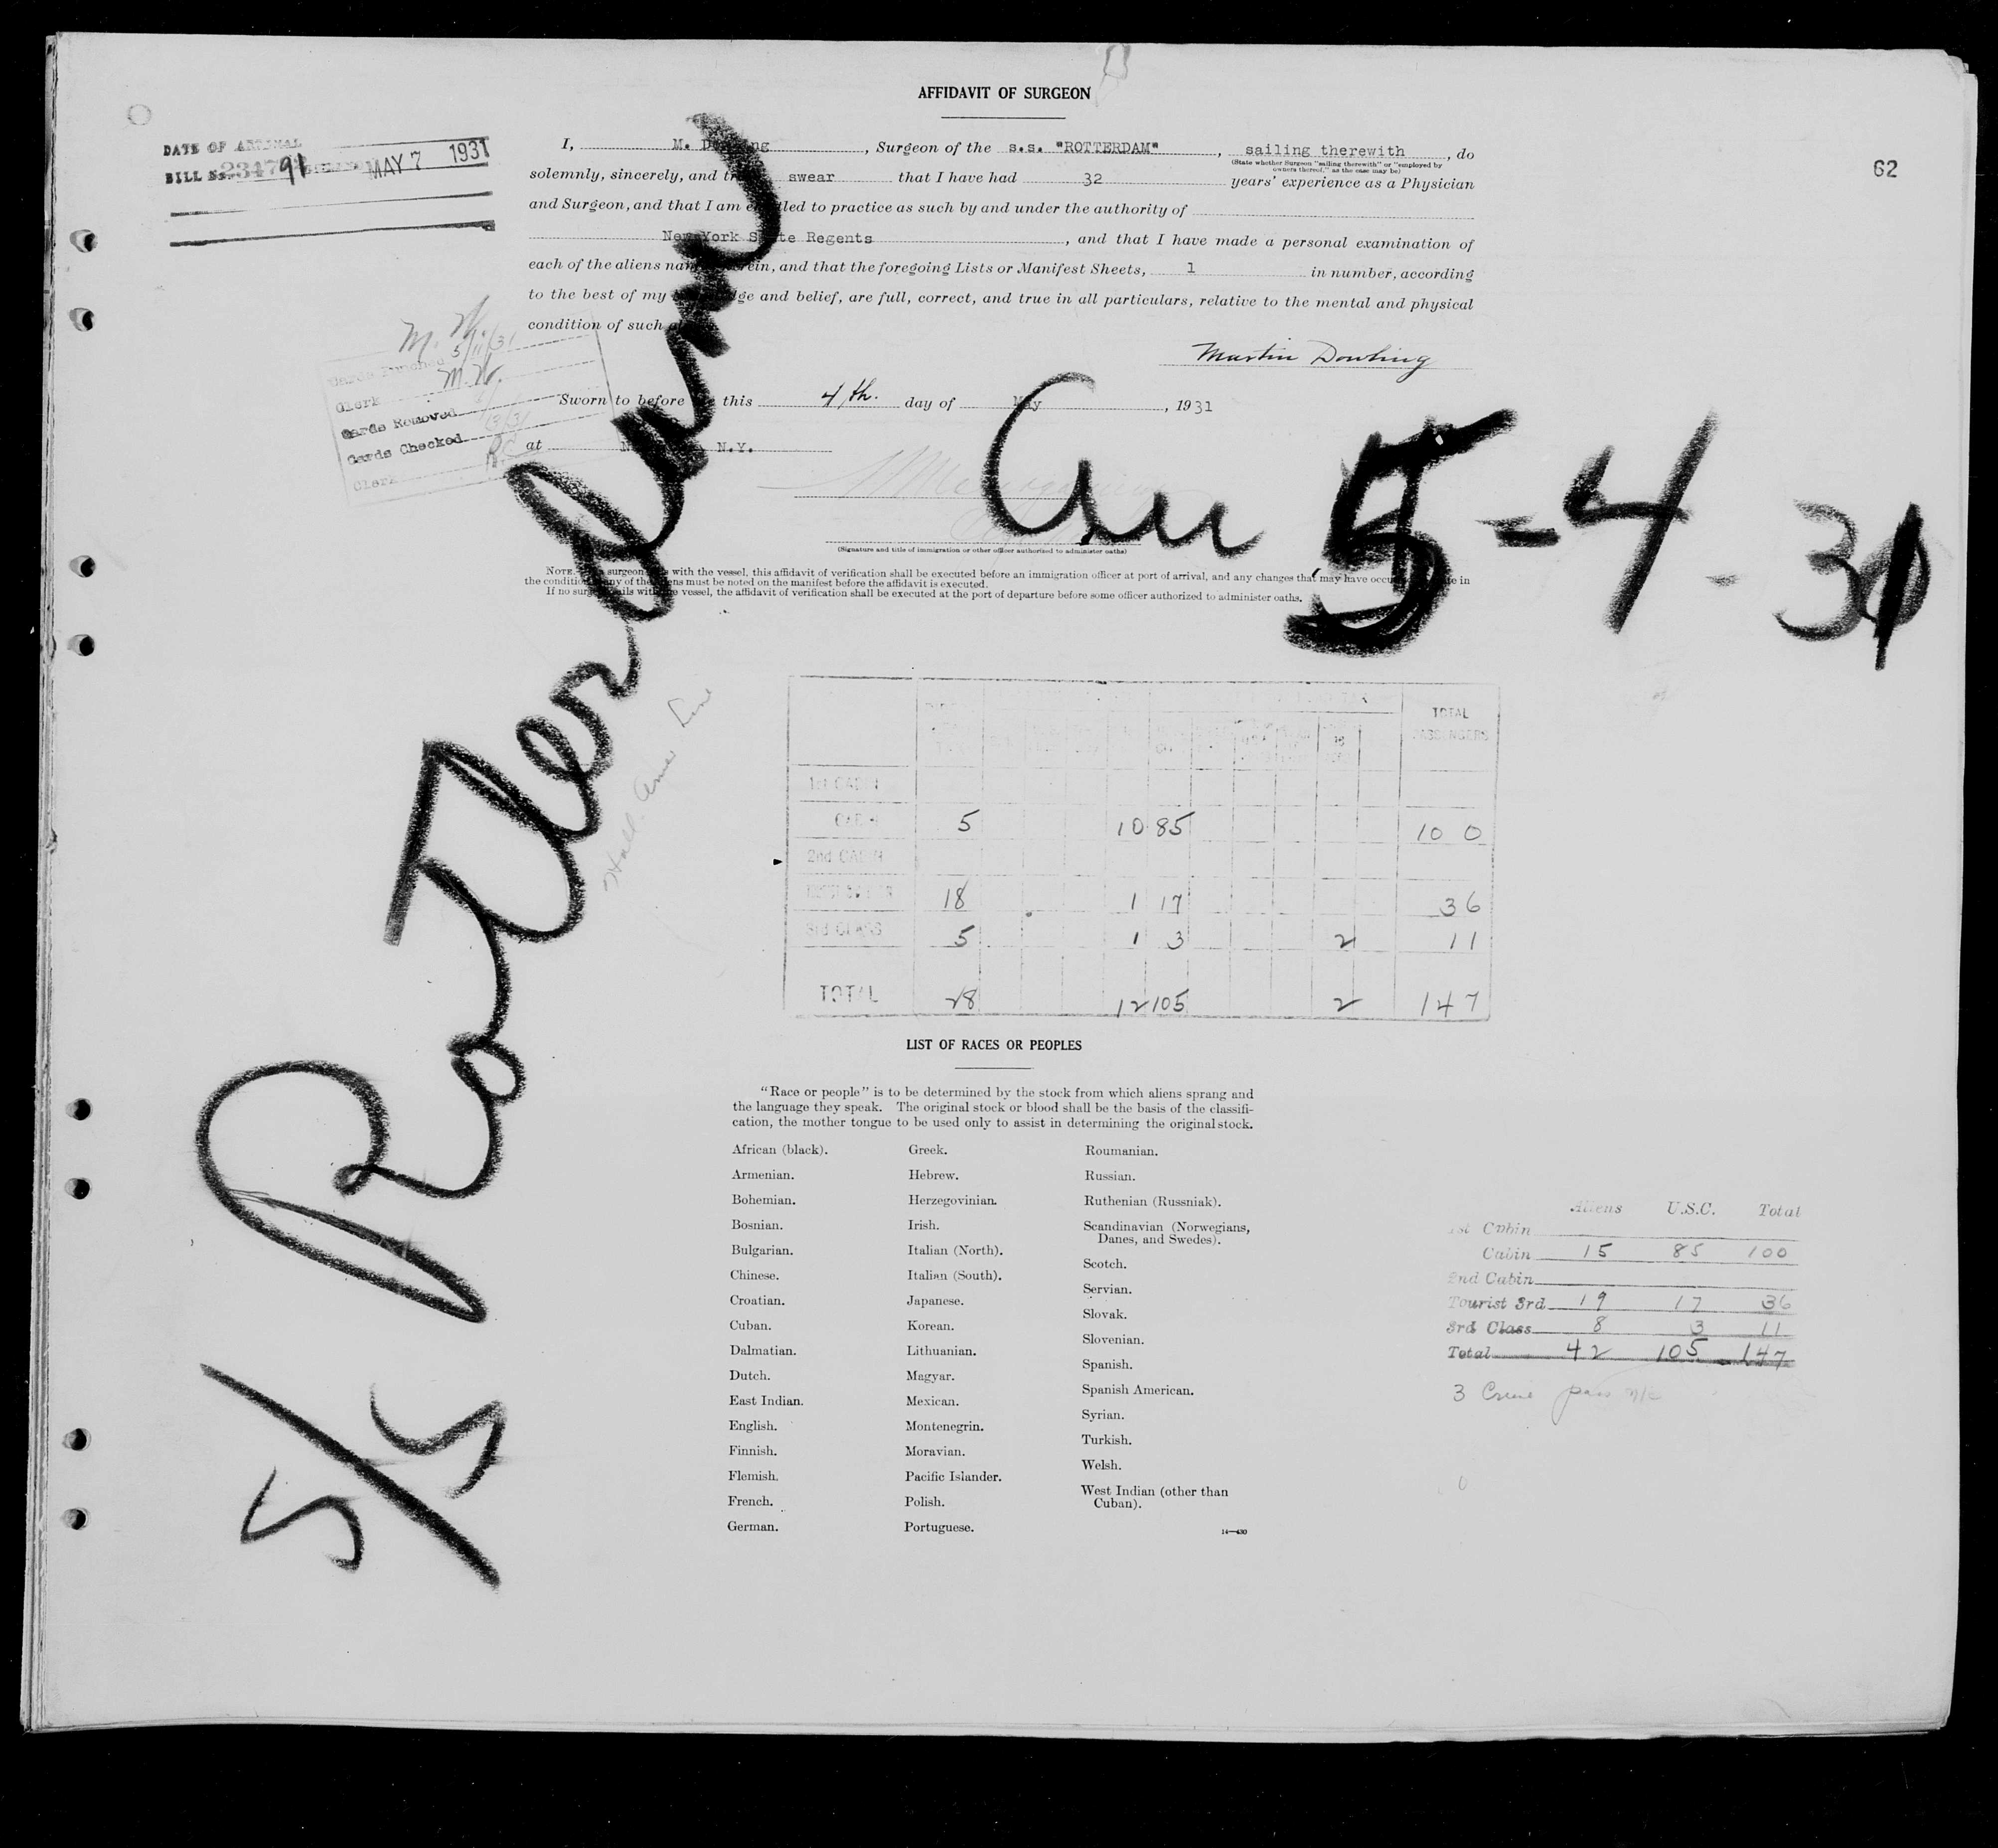 AFFIDAVIT OF SURGEON
DATE OF ARRIVAL
BILL No. 91 MAY 7 1931
62
I, M. Dowling, Surgeon of the s.s. "ROTTERDAM", sailing therewith, do
(State whether Surgeon "sailing therewith" or "employed by
owners thereof," as the case may be)
solemnly, sincerely, and truly swear that I have had 32 years' experience as a Physician
and Surgeon, and that I am entitled to practice as such by and under the authority of
New York State Regents, and that I have made a personal examination of
each of the aliens named herein, and that the foregoing Lists or Manifest Sheets, 1 in number, according
to the best of my knowledge and belief, are full, correct, and true in all particulars, relative to the mental and physical
condition of such
Martin Dowling
Sworn to before me this 4th. day of May, 1931
at N.Y.
M.W.
Cards Punched 5/11/31
Clerk M.W.
Cards Removed
Cards Checked
Clerk
(Signature and title of immigration or other officer authorized to administer oaths)
NOTE. surgeon with the vessel, this affidavit of verification shall be executed before an immigration officer at port of arrival, and any changes that may have occurred in
the condition of any of the aliens must be noted on the manifest before the affidavit is executed.
If no surgeon sails with the vessel, the affidavit of verification shall be executed at the port of departure before some officer authorized to administer oaths.
S/S Rotterdam
Arr 5-4-31
Holl. Amer Line
TOTAL
PASSENGERS
1st CABIN
CABIN 5 10 85 100
2nd CABIN
18 1 17 36
3rd CLASS 5 1 3 2 11
TOTAL 28 12 105 2 147
LIST OF RACES OR PEOPLES
"Race or people" is to be determined by the stock from which aliens sprang and
the language they speak. The original stock or blood shall be the basis of the classifi-
cation, the mother tongue to be used only to assist in determining the original stock.
African (black).
Armenian.
Bohemian.
Bosnian.
Bulgarian.
Chinese.
Croatian.
Cuban.
Dalmatian.
Dutch.
East Indian.
English.
Finnish.
Flemish.
French.
German.
Greek.
Hebrew.
Herzegovinian.
Irish.
Italian (North).
Italian (South).
Japanese.
Korean.
Lithuanian.
Magyar.
Mexican.
Montenegrin.
Moravian.
Pacific Islander.
Polish.
Portuguese.
Roumanian.
Russian.
Ruthenian (Russniak).
Scandinavian (Norwegians,
Danes, and Swedes).
Scotch.
Servian.
Slovak.
Slovenian.
Spanish.
Spanish American.
Syrian.
Turkish.
Welsh.
West Indian (other than
Cuban).
14—430
Aliens U.S.C. Total
1st Cabin
Cabin 15 85 100
2nd Cabin
Tourist 3rd 19 17 36
3rd Class 8 3 11
Total 42 105 147
3